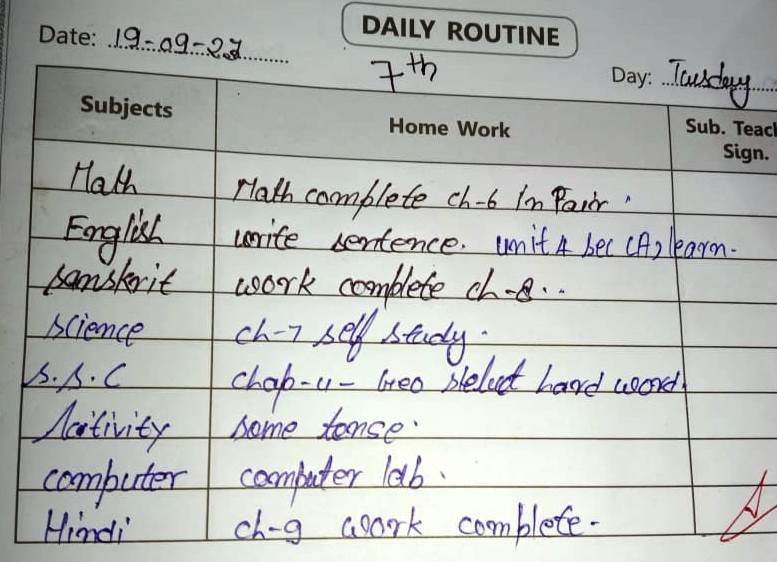 DAILY ROUTINE
Date: 19-09-23
7th
Day: Tuesday
Subjects Home Work Sub. Teac Sign.
Math Math complete ch-6 In Pair.
English write sentence. unit 4 sec (A) learn.
sanskrit work complete ch-8..
science ch-7 self study.
S.S.C chap-4- Geo select hard word
Activity some tense.
computer computer lab.
Hindi ch-9 work complete.